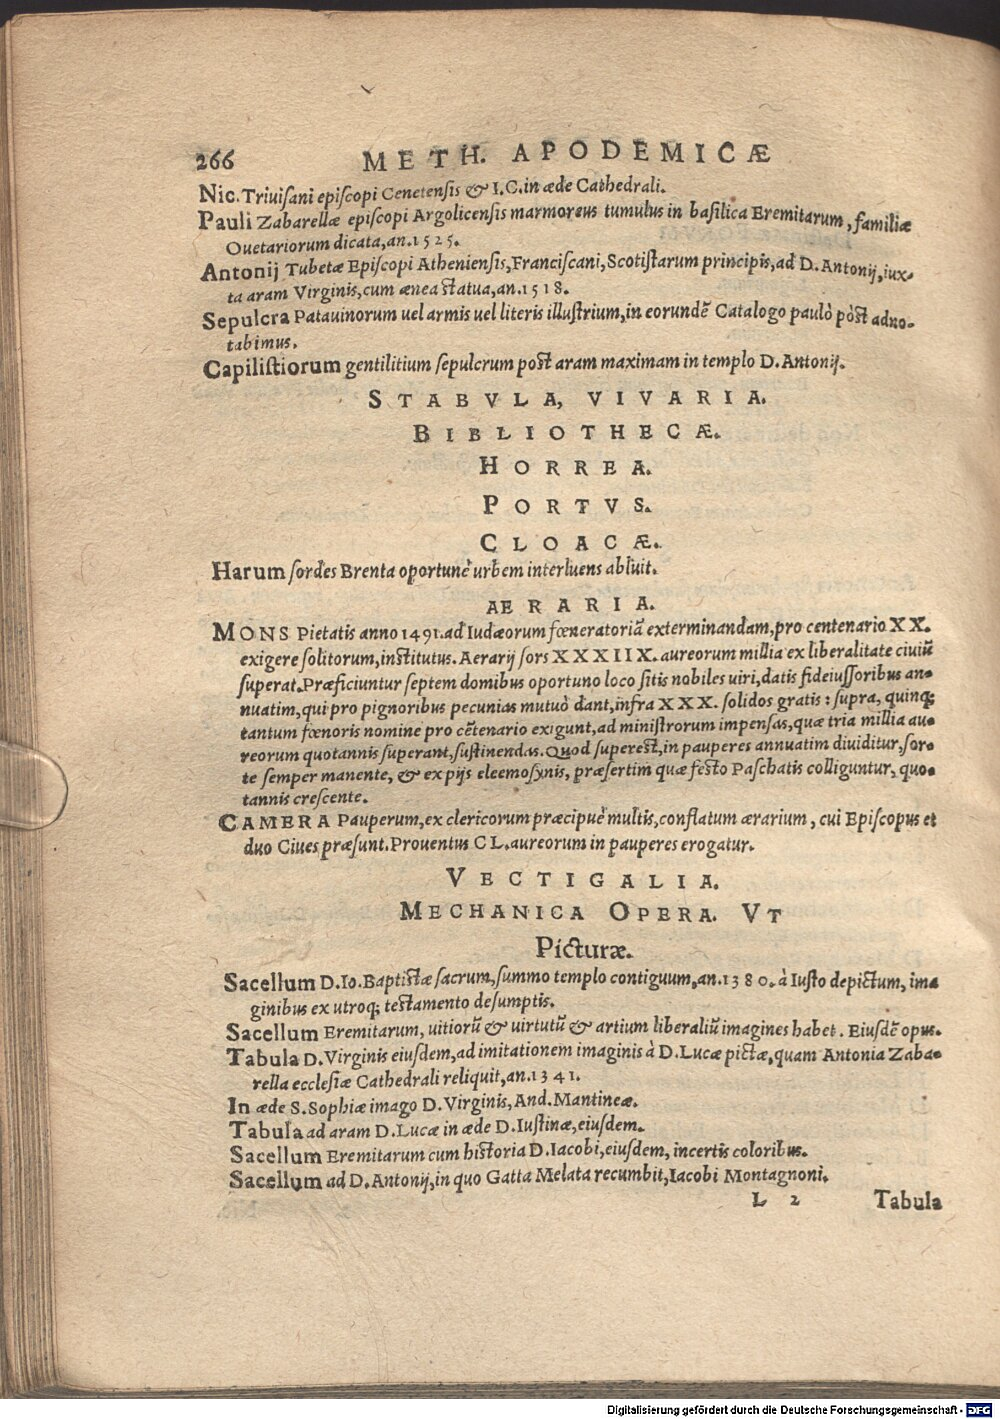 266 METH. APODEMICÆ
Nic. Triuiſani epiſcopi Cenetenſis & I.C. in æde Cathedrali.
Pauli Zabarellæ epiſcopi Argolicenſis marmoreus tumulus in baſilica Eremitarum, familiæ
Ouetariorum dicata, an. 1525.
Antonij Tubetæ Epiſcopi Athenienſis, Franciſcani, Scotiſtarum principis, ad D. Antonij, iux-
ta aram Virginis, cum ænea ſtatua, an. 1518.
Sepulcra Patauinorum uel armis uel literis illuſtrium, in eorundē Catalogo paulò pòſt adno-
tabimus.
Capiliſtiorum gentilitium ſepulcrum poſt aram maximam in templo D. Antonij.
STABVLA, VIVARIA.
BIBLIOTHECÆ.
HORREA.
PORTVS.
CLOACÆ.
Harum ſordes Brenta oportunè urbem interluens abluit.
AERARIA.
MONS Pietatis anno 1491. ad Iudæorum fœneratoriā exterminandam, pro centenario XX.
exigere ſolitorum, inſtitutus. Aerarij ſors XXXIIX. aureorum millia ex liberalitate ciuiū
ſuperat. Præficiuntur ſeptem domibus oportuno loco ſitis nobiles uiri, datis fideiuſſoribus an-
nuatim, qui pro pignoribus pecunias mutuò dant, infra XXX. ſolidos gratis: ſupra, quinq;
tantum fœnoris nomine pro cētenario exigunt, ad miniſtrorum impenſas, quæ tria millia au-
reorum quotannis ſuperant, ſuſtinendas. Quod ſupereſt, in pauperes annuatim diuiditur, ſor-
te ſemper manente, & ex pijs eleemoſynis, præſertim quæ feſto Paſchatis colliguntur, quo-
tannis creſcente.
CAMERA Pauperum, ex clericorum præcipuè multis, conflatum ærarium, cui Epiſcopus et
duo Ciues præſunt. Prouentus CL. aureorum in pauperes erogatur.
VECTIGALIA.
MECHANICA OPERA. VT
Picturæ.
Sacellum D. Io. Baptiſtæ ſacrum, ſummo templo contiguum, an. 1380. à Iuſto depictum, ima
ginibus ex utroq; teſtamento deſumptis.
Sacellum Eremitarum, uitiorū & uirtutū & artium liberaliū imagines habet. Eiuſdē opus.
Tabula D. Virginis eiuſdem, ad imitationem imaginis à D. Lucæ pictæ, quam Antonia Zaba-
rella eccleſiæ Cathedrali reliquit, an. 1341.
In æde S. Sophiæ imago D. Virginis, And. Mantineæ.
Tabula ad aram D. Lucæ in æde D. Iuſtinæ, eiuſdem.
Sacellum Eremitarum cum hiſtoria D. Iacobi, eiuſdem, incertis coloribus.
Sacellum ad D. Antonij, in quo Gatta Melata recumbit, Iacobi Montagnoni.
L 2 Tabula
Digitalisierung gefördert durch die Deutsche Forschungsgemeinschaft - DFG